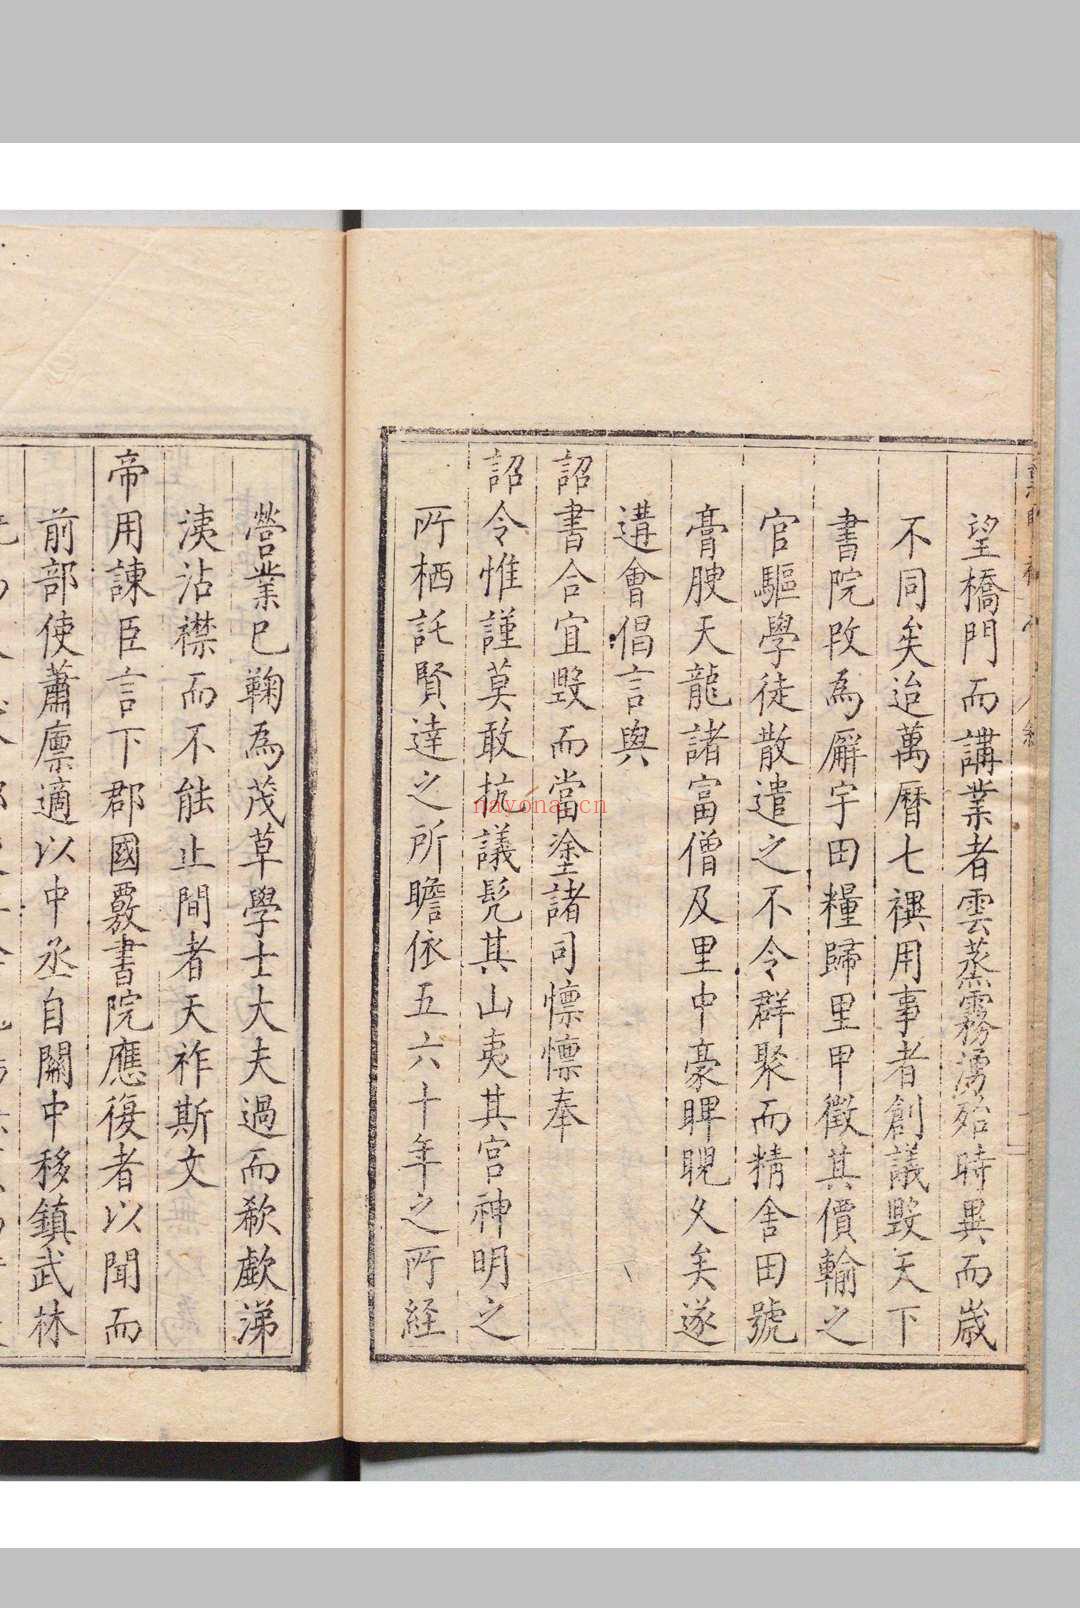 望橋門而講業者雲蒸霧湧殆時異而歲
不同矣迨萬曆七禩用事者創議毀天下
書院改為廨宇田糧歸里甲徵其價輸之
官驅學徒散遣之不令群聚而精舍田號
膏腴天龍諸富僧及里中豪睥睨久矣遂
遘會倡言與
詔書合宜毀而當塗諸司懍懍奉
詔令惟謹莫敢抗議髡其山夷其宮神明之
所栖託賢達之所瞻依五六十年之所経
營業已鞠為茂草學士大夫過而欷歔涕
洟沾襟而不能止間者天祚斯文
帝用諫臣言下郡國覈書院應復者以聞而
前部使蕭廩適以中丞自關中移鎮武林
nayona.cn